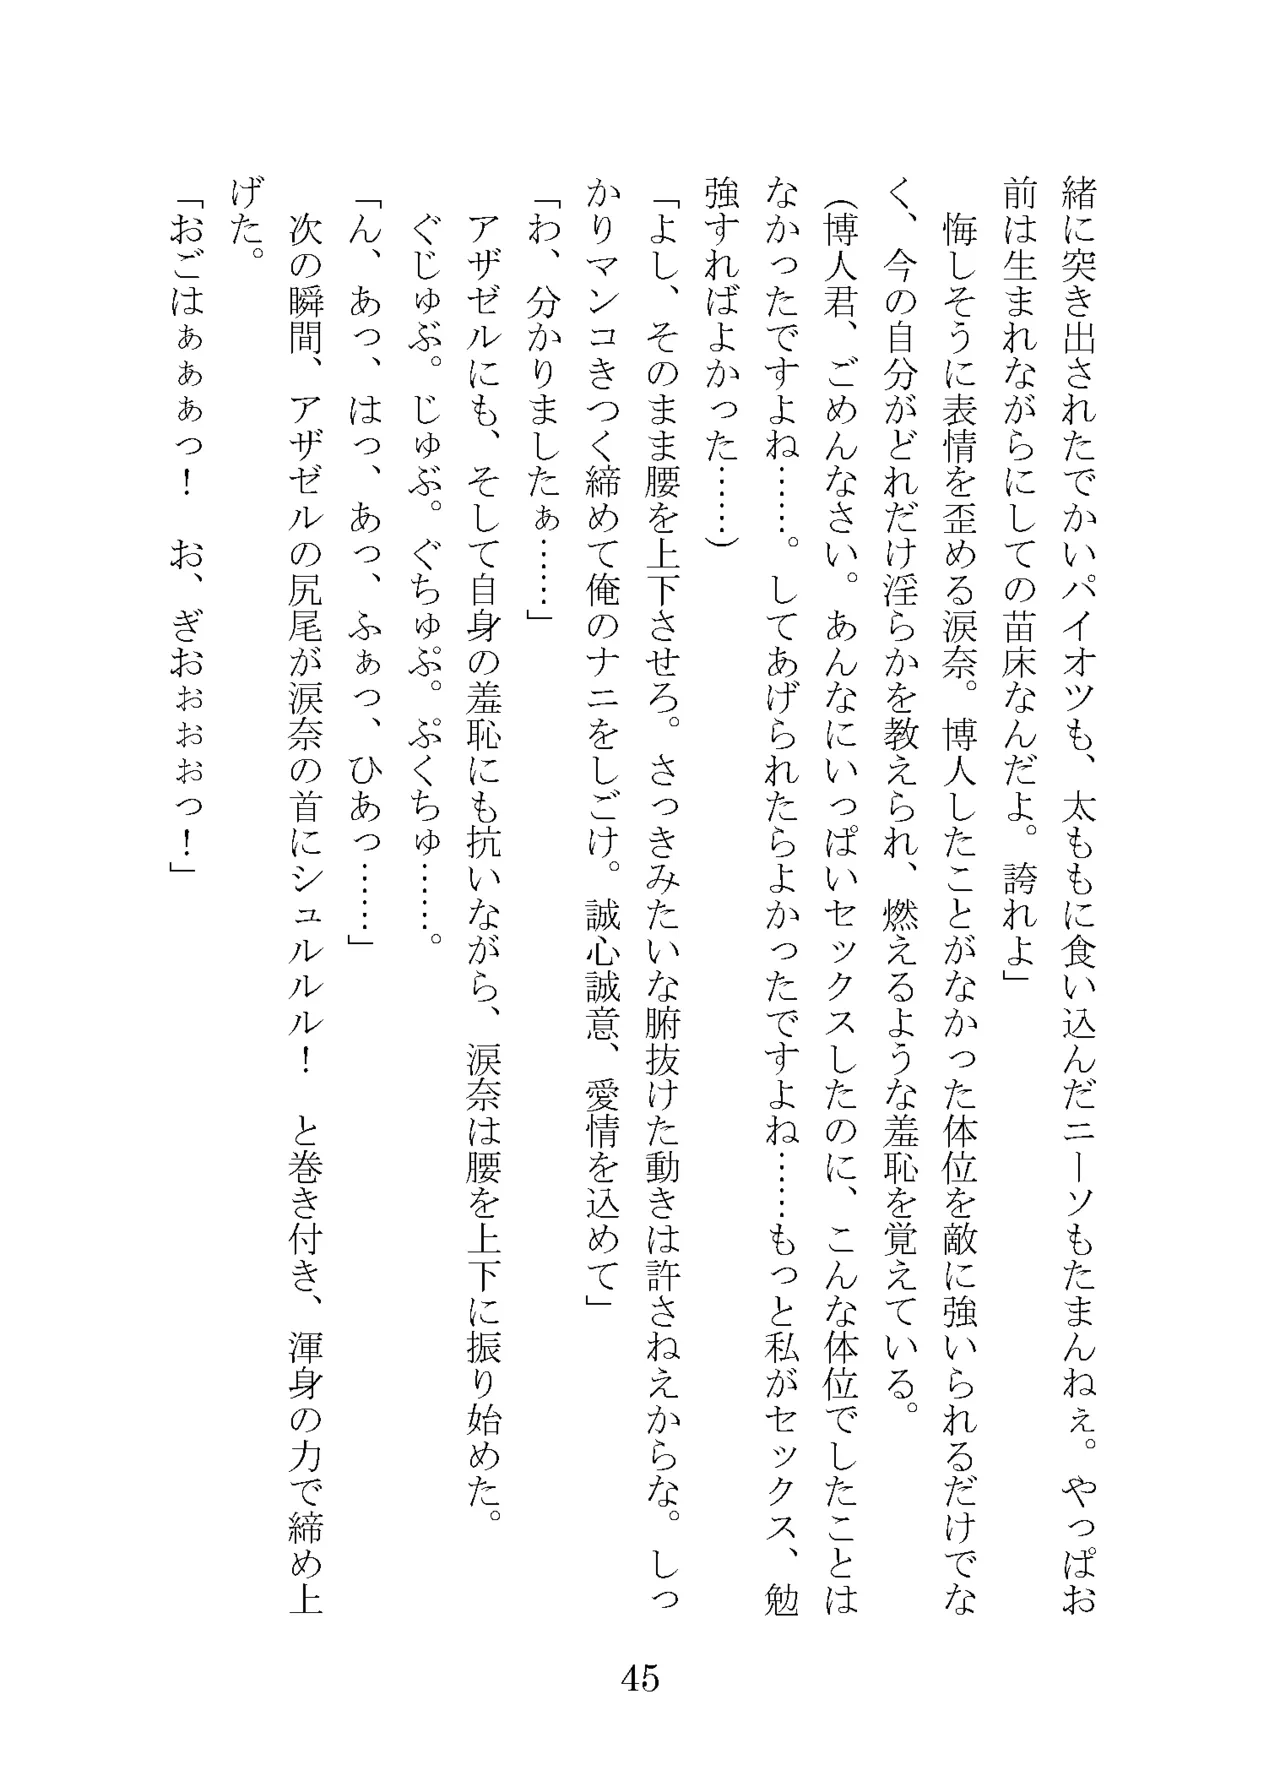 緒に突き出されたでかいパイオツも、太ももに食い込んだニーソもたまんねぇ。やっぱお
前は生まれながらにしての苗床なんだよ。誇れよ」
　悔しそうに表情を歪める涙奈。博人したことがなかった体位を敵に強いられるだけでな
く、今の自分がどれだけ淫らかを教えられ、燃えるような羞恥を覚えている。
（博人君、ごめんなさい。あんなにいっぱいセックスしたのに、こんな体位でしたことは
なかったですよね……。してあげられたらよかったですよね……もっと私がセックス、勉
強すればよかった……）
「よし、そのまま腰を上下させろ。さっきみたいな腑抜けた動きは許さねえからな。しっ
かりマンコきつく締めて俺のナニをしごけ。誠心誠意、愛情を込めて」
「わ、分かりましたぁ……」
　アザゼルにも、そして自身の羞恥にも抗いながら、涙奈は腰を上下に振り始めた。
　ぐじゅぶ。じゅぶ。ぐちゅぷ。ぷくちゅ……。
「ん、あっ、はっ、あっ、ふぁっ、ひあっ……」
　次の瞬間、アザゼルの尻尾が涙奈の首にシュルルル！　と巻き付き、渾身の力で締め上
げた。
「おごはぁぁぁっ！　お、ぎおぉぉぉっ！」
45